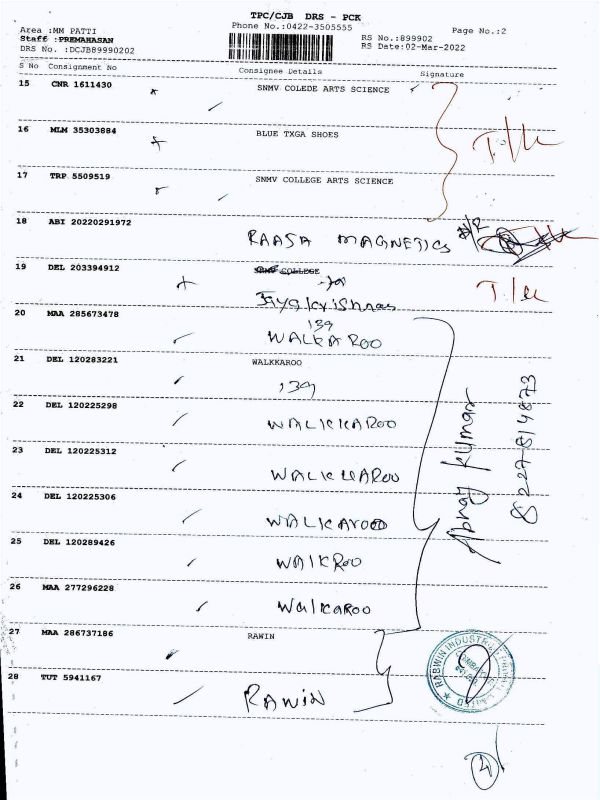 TPC/CJB DRS - PCK
Phone No.:0422-3505555
Area :MM PATTI
Staff :PREMAHASAN
DRS No. :DCJB89990202
RS No.:899902
Page No.:2
RS Date:02-Mar-2022
S No Consignment No Consignee Details Signature
15 CNR 1611430 SNMV COLEDE ARTS SCIENCE
16 MLM 35303884 BLUE TXGA SHOES
17 TRP 5509519 SNMV COLLEGE ARTS SCIENCE
18 ABI 20220291972 RAASA MAGNETICS
19 DEL 203394912 SNMV COLLEGE
Jayakrishnas
20 MAA 285673478 139
WALKAROO
21 DEL 120283221 WALKKAROO
139
22 DEL 120225298 WALKKAROO
23 DEL 120225312 WALKKAROO
24 DEL 120225306 WALKAROO
25 DEL 120289426 WAlKROO
26 MAA 277296228 WalkaROO
Abhay kumar
8227814873
27 MAA 286737186 RAWIN
28 TUT 5941167 RAWIN
4